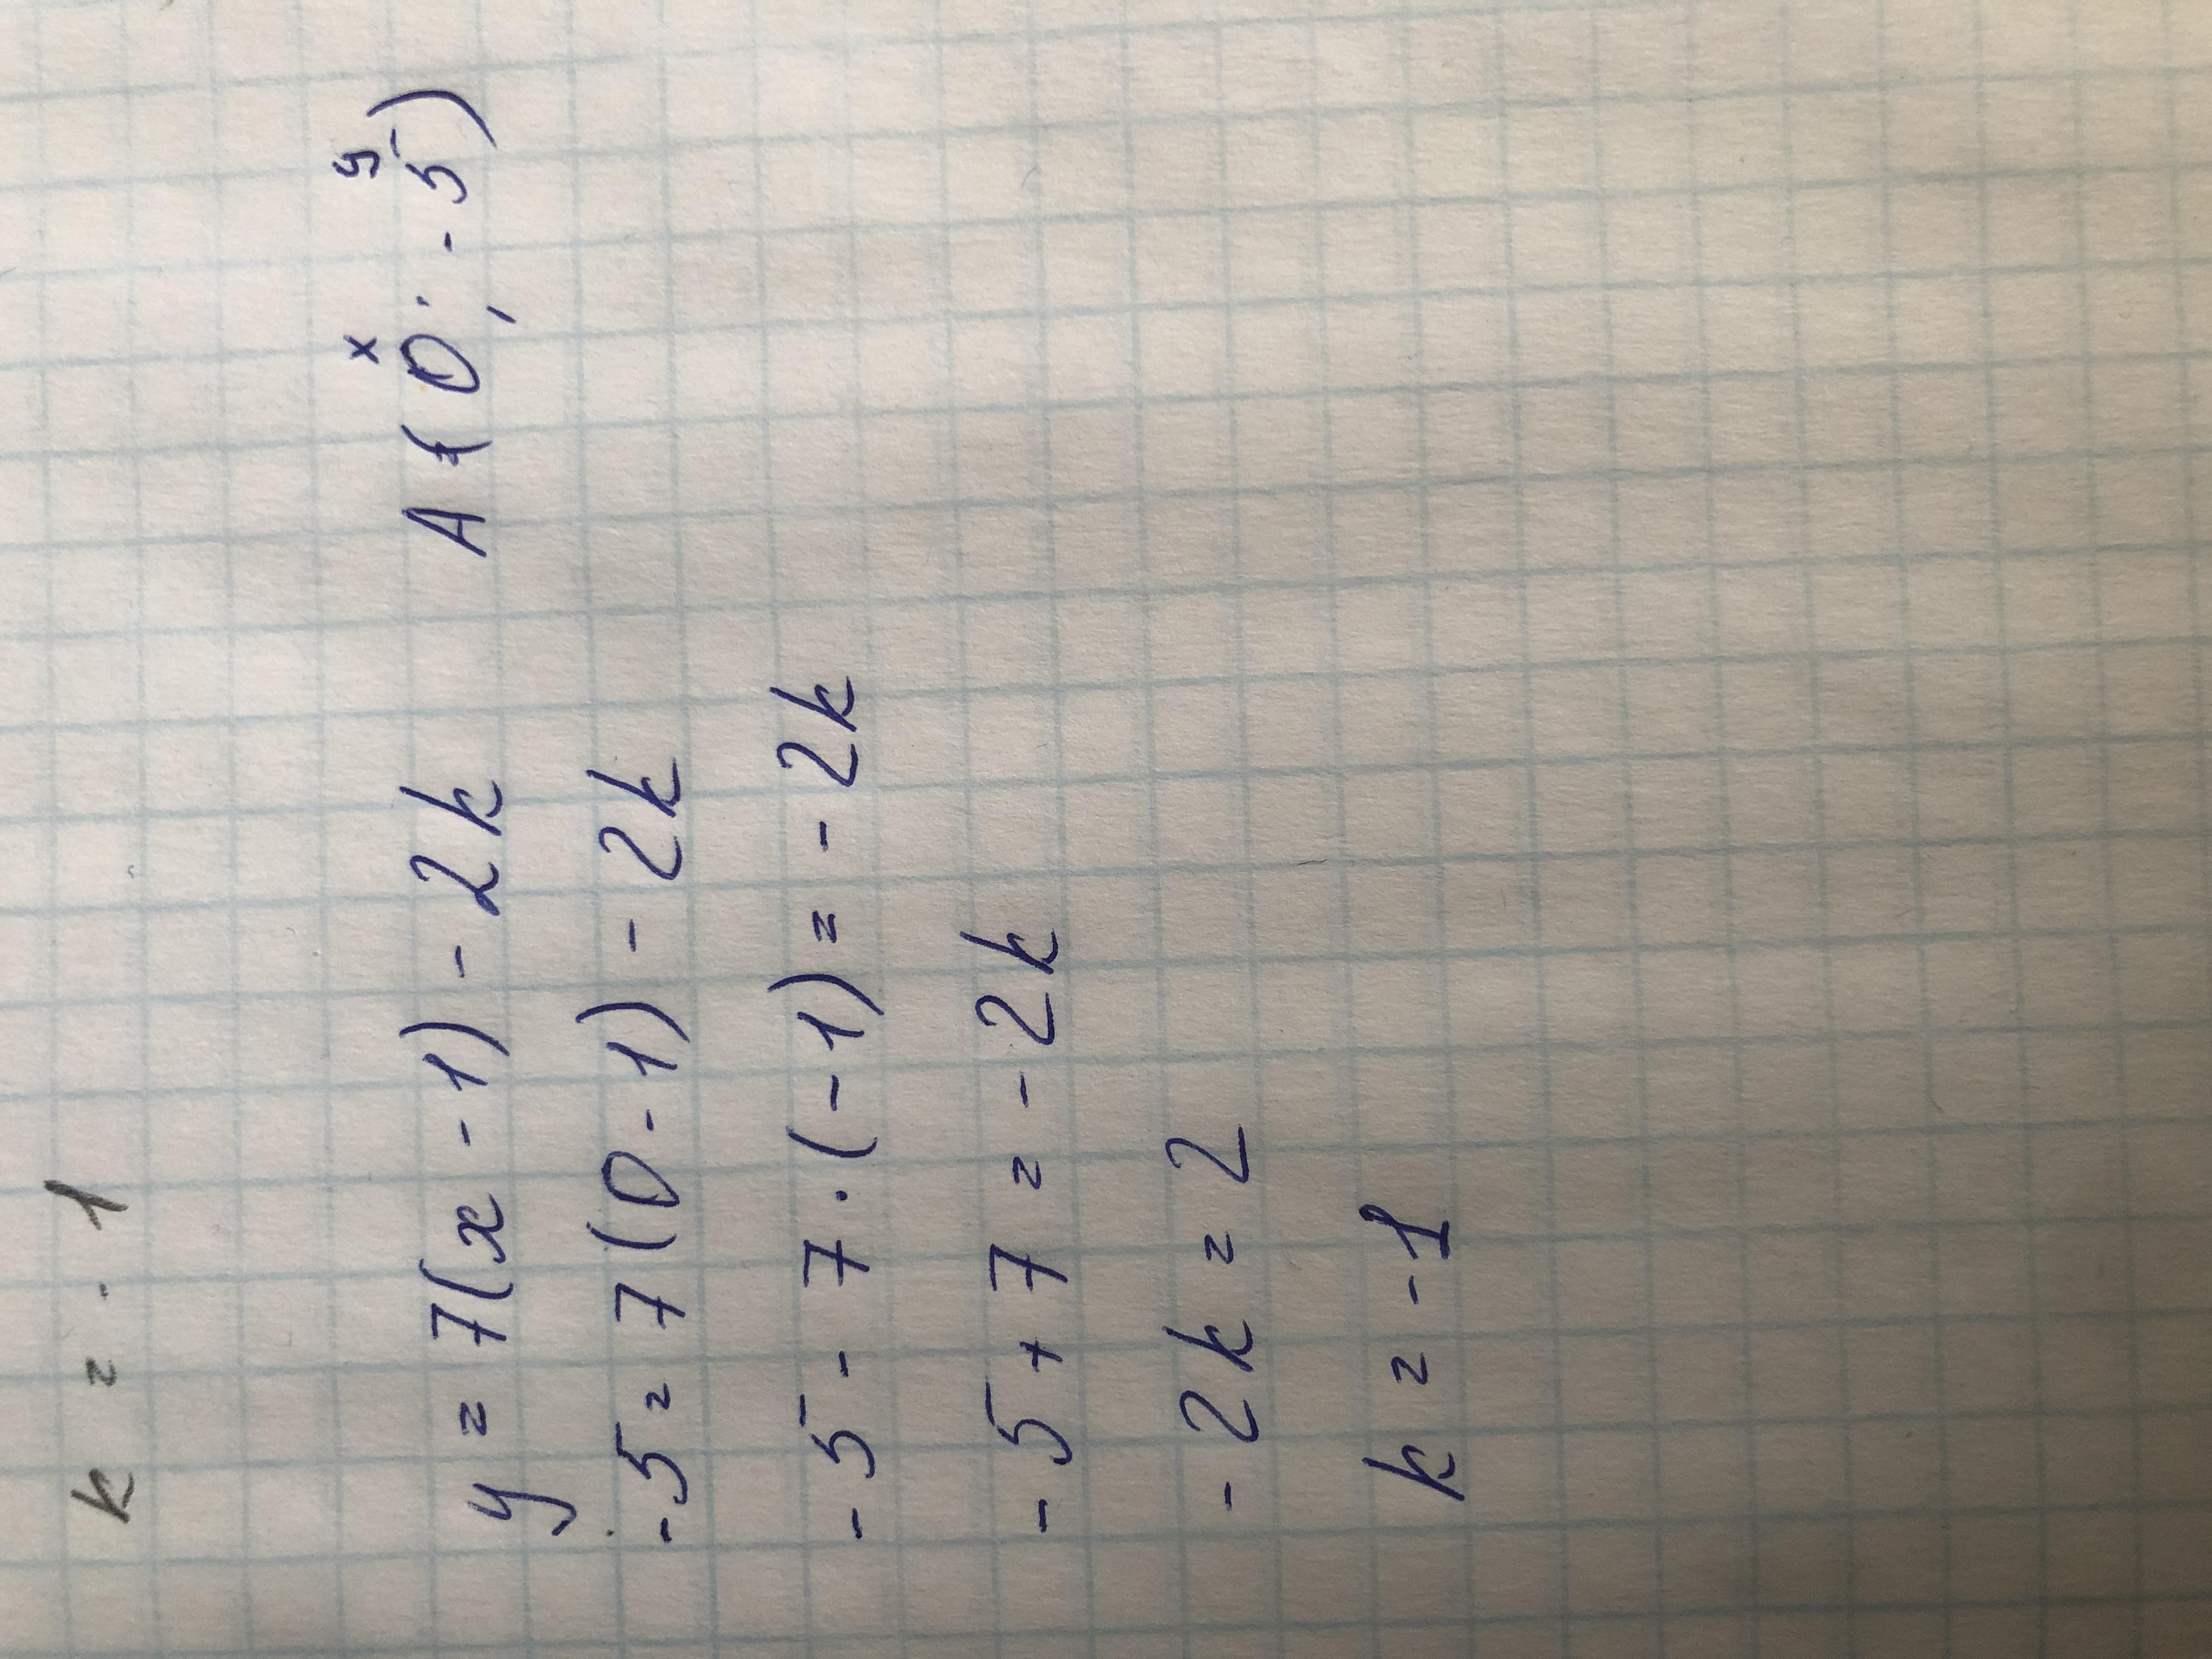 k = -1
y = 7(x - 1) - 2k A (0; -5) x y
-5 = 7(0 - 1) - 2k
-5 - 7 · (-1) = -2k
-5 + 7 = -2k
-2k = 2
k = -1